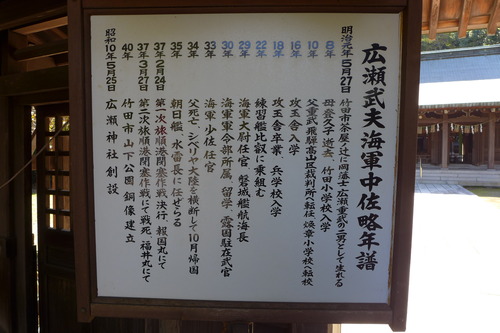 広瀬武夫海軍中佐略年譜
明治元年5月27日 竹田市茶屋ノ辻に岡藩士広瀬重武の二男として生れる
8年 母登久子逝去 竹田小学校入学
10年 父重武飛騨高山区裁判所へ転任 煥章小学校へ転校
16年 攻玉舎入学
18年 攻玉舎卒業 兵学校入学
22年 練習艦比叡に乗組む
29年 海軍大尉任官 磐城艦航海長
30年 海軍軍令部所属 留学 露国駐在武官
33年 海軍少佐任官
34年 父死亡 シベリヤ大陸を横断して10月帰国
35年 朝日艦 水雷長に任せらる
37年2月24日 第一次旅順港閉塞作戦決行 報国丸にて
37年3月27日 第二次旅順港閉塞作戦にて戦死 福井丸にて
40年 竹田市山下公園銅像建立
昭和10年5月25日 広瀬神社創設